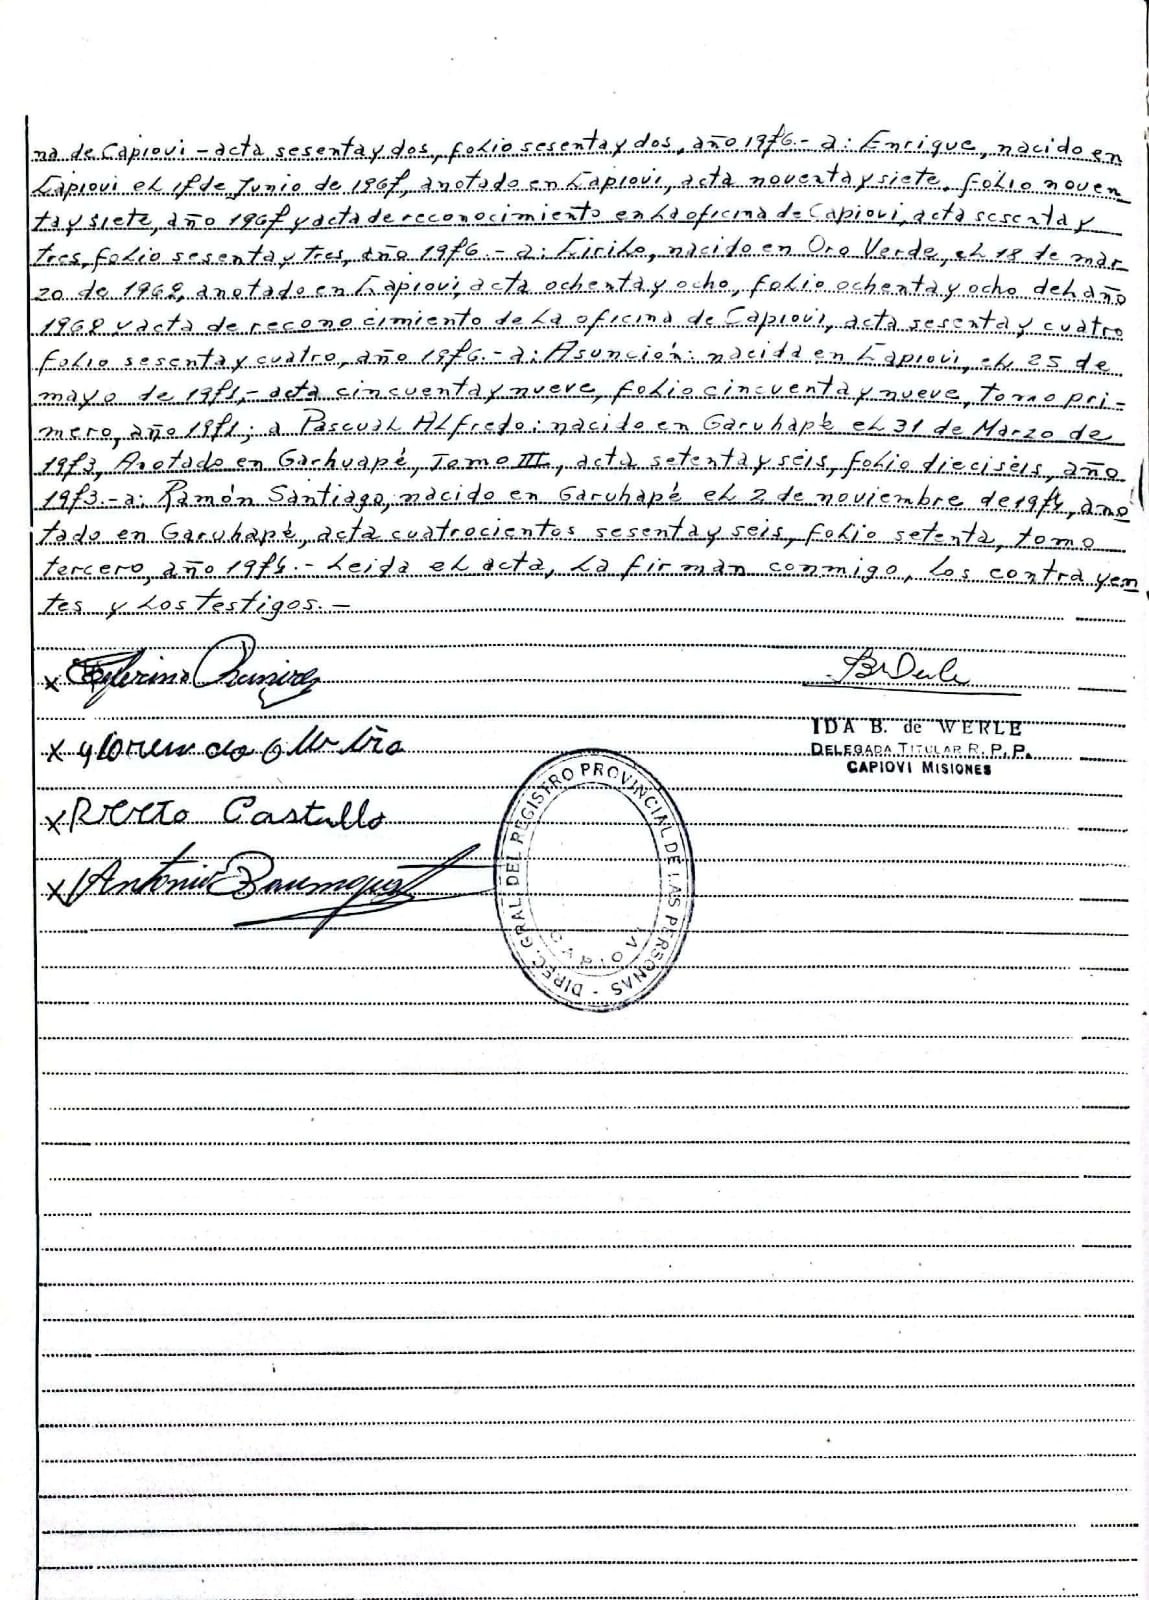 na de Capiovi - acta sesenta y dos, folio sesenta y dos, año 1976.- a: Enrique, nacido en
Capiovi el 17 de Junio de 1967, anotado en Capiovi, acta noventa y siete, folio noven
ta y siete, año 1967 y acta de reconocimiento en la oficina de Capiovi, acta sesenta y
tres, folio sesenta y tres, año 1976.- a: Cirilo, nacido en Oro Verde, el 18 de mar
zo de 1969, anotado en Capiovi, acta ochenta y ocho, folio ochenta y ocho del año
1969 y acta de reconocimiento de la oficina de Capiovi, acta sesenta y cuatro
folio sesenta y cuatro, año 1976.- a: Asunción: nacida en Capiovi, el 25 de
mayo de 1971,- acta cincuenta y nueve, folio cincuenta y nueve, tomo pri-
mero, año 1971; a Pascual Alfredo: nacido en Garuhapé el 31 de Marzo de
1973, Anotado en Garhuapé, Tomo III, acta setenta y seis, folio dieciseis, año
1973.- a: Ramón Santiago, nacido en Garuhapé el 2 de noviembre de 1974, ano
tado en Garuhapé, acta cuatrocientos sesenta y seis, folio setenta, tomo
tercero, año 1974.- Leida el acta, la firman conmigo, los contrayen
tes y los testigos.-
x Ramirez
x
IDA B. de WERLE
DELEGADA TITULAR R. P. P.
CAPIOVI MISIONES
x Castillo
x Antonio
DIREC. GRAL. DEL REGISTRO PROVINCIAL DE LAS PERSONAS -
CAPIOVI